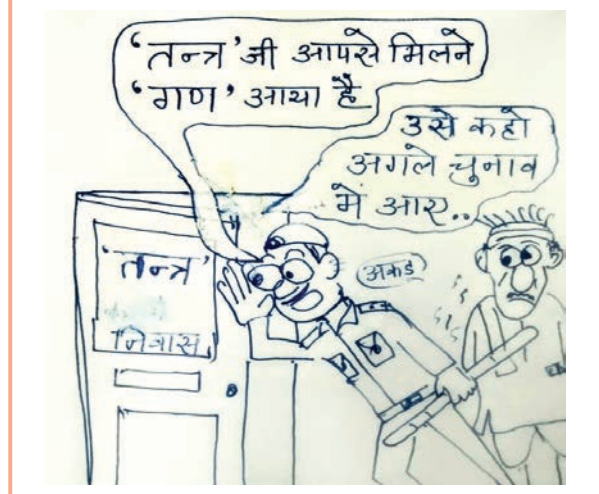 'तन्त्र' जी आपसे मिलने
'गण' आया है
उसे कहो
अगले चुनाव
में आए..
'तन्त्र'
निवास
अकड़